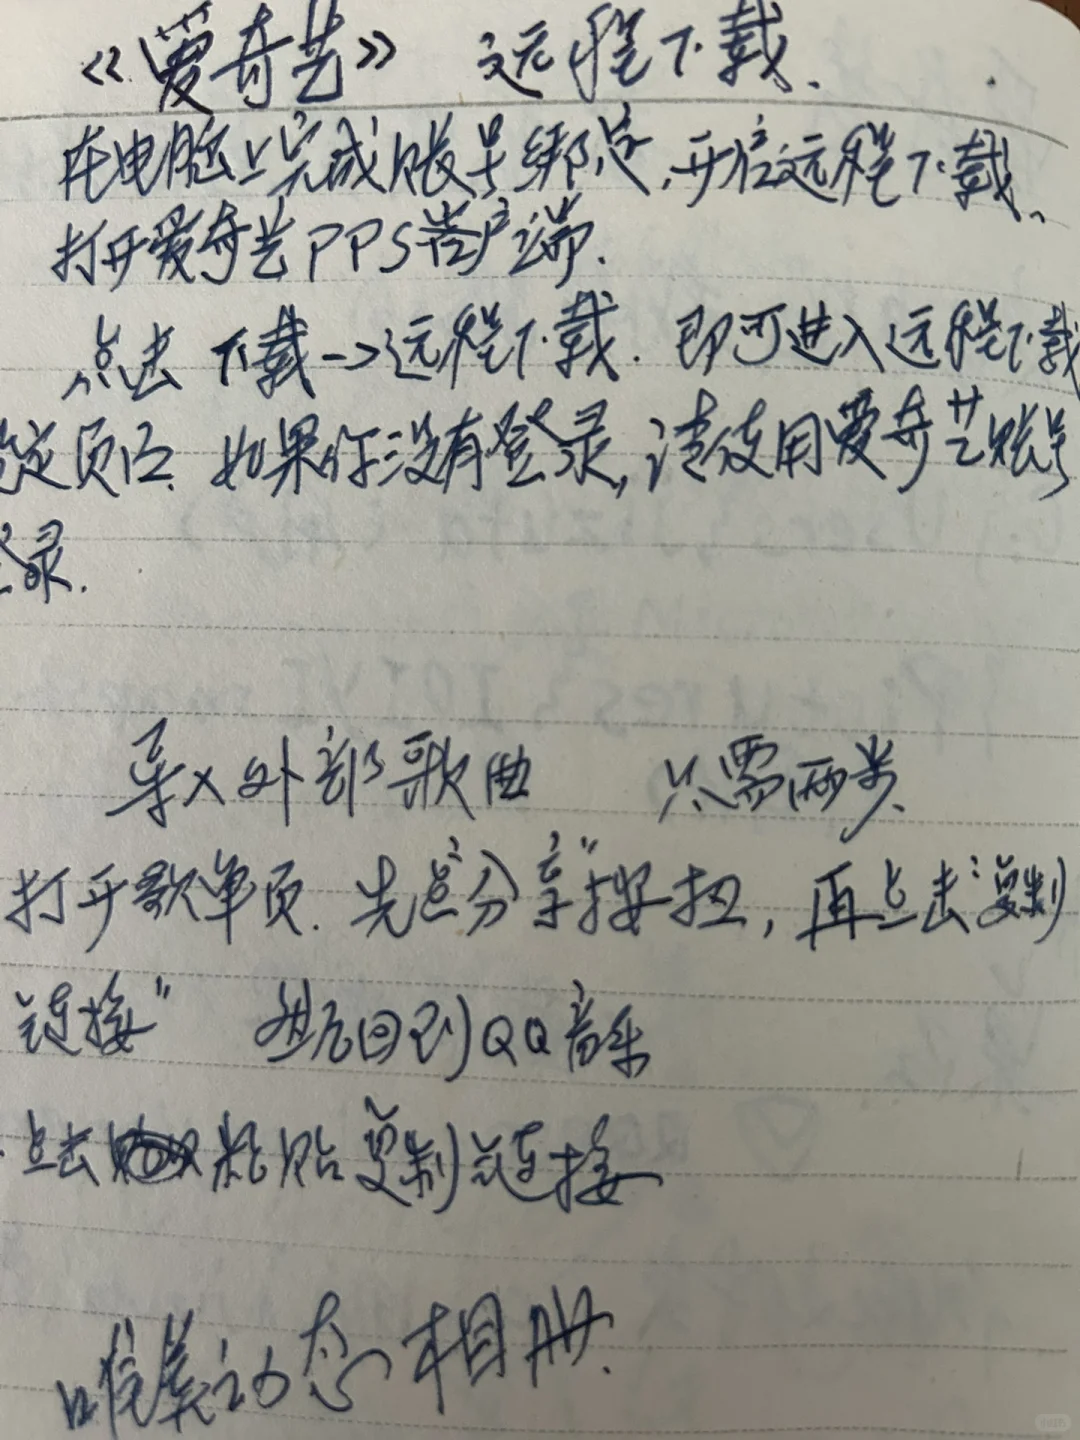 《爱奇艺》 远程下载.
在电脑上完成账号绑定,开启远程下载、
打开爱奇艺PPS客户端.
点击 下载->远程下载. 即可进入远程下载
定页面. 如果你没有登录,请使用爱奇艺账号
登录.
导入外部歌曲 只需两步、
打开歌单页. 先点分享"按扭, 再点击"复制
链接" 然后回到QQ音乐
点击 粘贴复制链接
唯美动态相册.